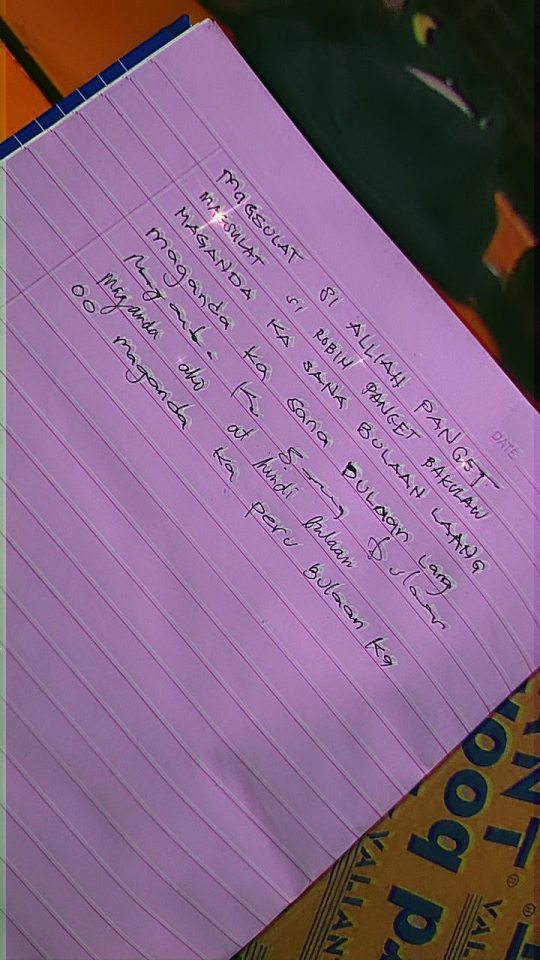 DATE
MAGSULAT SI ALLIAH PANGET
MAGSULAT SI ROBIN PANGET BAKULAW
MAGANDA KA SANA BULAAN LAANG
maganda ka sana BULaan lang
Ka
maganda ako at hindi bulaan
oo maganda ka pero Bulaan ka
rd book
VALIAN
NT
VAL